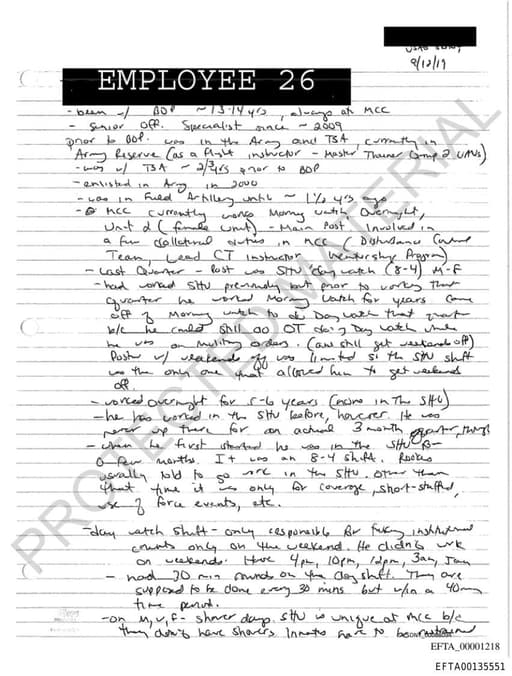 9/12/19
EMPLOYEE 26
- been w/ BOP ~ 13-14 yrs, always at MCC
- Senior Off. Specialist since ~ 2009
prior to BOP was in the Army and TSA, currently in
Army Reserve (as a instructor - Master Trainer
- was w/ TSA ~ 2/3 yrs prior to BOP
- enlisted in Army in 2000
- was in Field Artillery until ~ 1½ yrs ago
- @ MCC currently works Morning watch Overnight,
Unit 2 (female unit) - Main Post Involved in
a few collateral duties in MCC (Disturbance Control
Team, Lead CT Instructor Mentorship Program)
- Last Quarter - Post was SHU day watch (8-4) M-F
- had worked SHU previously but prior to working that
quarter he worked Morning watch for years Came
off of Morning watch to do Day watch that quarter
b/c he could still do OT doing Day watch while
he was on Military orders. (and still get weekends off)
Posts w/ weekends off was limited so the SHU shift
was the only one that allowed him to get weekends
off.
- worked overnight for 5-6 years (none in the SHU)
- he has worked in the SHU before, however. He was
never up there for an actual 3 month quarter, though
- when he first started he was in the SHU for
a few months. It was an 8-4 shift. Rookies
usually told to go work in the SHU. Other than
that time it was only for coverage, short-staffed,
use of force events, etc.
- day watch shift - only responsible for taking institutional
counts only on the weekend. He didn't work
on weekends. Have 4pm, 10pm, 12pm, 3am, 5am
- had 30 min rounds on the day shift. They are
supposed to be done every 30 mins but w/in a 40 min
time period.
- on M, W, F - shower days. SHU is unique at MCC b/c
they don't have showers. Inmates have to be
PROTECTED MATERIAL
EFTA_00001218
EFTA00135551